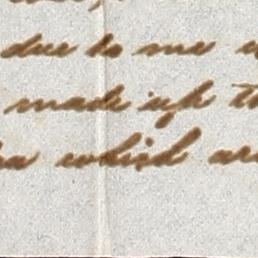 due to me
made up
which are